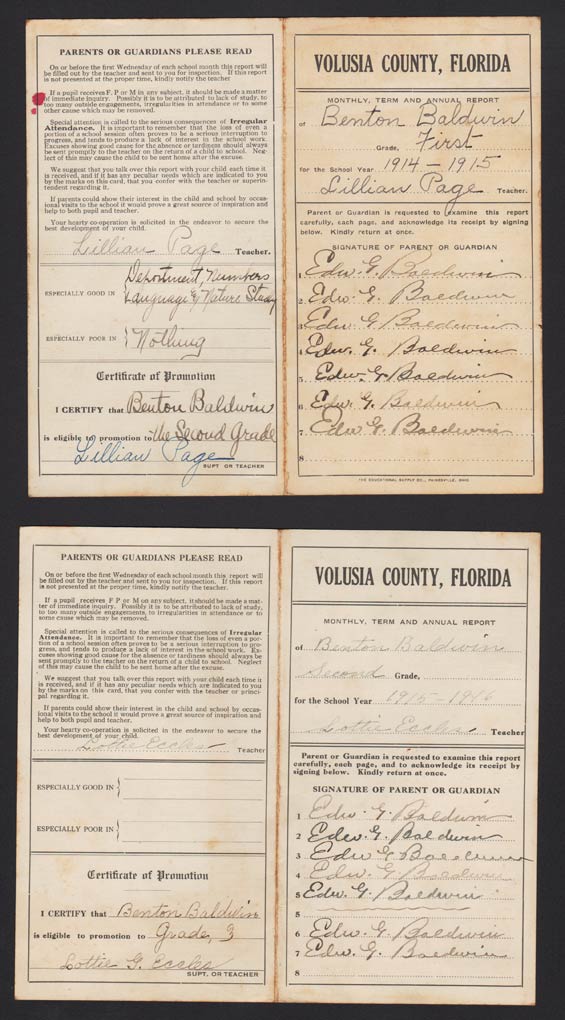 PARENTS OR GUARDIANS PLEASE READ
On or before the first Wednesday of each school month this report
will be filled out by the teacher and sent to you for inspection. If this report
is not presented at the proper time, kindly notify the teacher
If a pupil receives F. P or M in any subject, it should be made a matter
of immediate inquiry. Possibly it is to be attributed to lack of study, to
too many outside engagements, irregularities in attendance or to some
other cause which may be removed.
Special attention is called to the serious consequences of Irregular
Attendance. It is important to remember that the loss of even a
portion of a school session often proves to be a serious interruption to
progress, and tends to produce a lack of interest in the school work.
Excuses showing good cause for the absence or tardiness should always
be sent promptly to the teacher on the return of a child to school. Neg-
lect of this may cause the child to be sent home after the excuse.
We suggest that you talk over this report with your child each time it
is received, and if it has any peculiar needs which are indicated to you by
the marks on this card, that you confer with the teacher or superin-
tendent regarding it.
If parents could show their interest in the child and school by occas-
ional visits to the school it would prove a great source of inspiration and
help to both pupil and teacher.
Your hearty co-operation is solicited in the endeavor to secure the
best development of your child.
Lillian Page Teacher.
ESPECIALLY GOOD IN Deportment, Numbers
Language & Nature Study
ESPECIALLY POOR IN Nothing
Certificate of Promotion
I CERTIFY that Benton Baldwin
is eligible to promotion to the Second Grade
Lillian Page
SUPT. OR TEACHER
VOLUSIA COUNTY, FLORIDA
MONTHLY, TERM AND ANNUAL REPORT
of Benton Baldwin
Grade, First
for the School Year 1914-1915
Lillian Page Teacher.
Parent or Guardian is requested to examine this report
carefully, each page, and acknowledge its receipt by signing
below. Kindly return at once.
SIGNATURE OF PARENT OR GUARDIAN
1 Edw. G. Baldwin
2 Edw. G. Baldwin
3 Edw. G. Baldwin
4 Edw. G. Baldwin
5 Edw. G. Baldwin
6 Edw. G. Baldwin
7 Edw G. Baldwin
8
THE EDUCATIONAL SUPPLY CO., PAINESVILLE, OHIO
PARENTS OR GUARDIANS PLEASE READ
On or before the first Wednesday of each school month this report will
be filled out by the teacher and sent to you for inspection. If this report
is not presented at the proper time, kindly notify the teacher.
If a pupil receives F P or M in any subject, it should be made a mat-
ter of immediate inquiry. Possibly it is to be attributed to lack of study,
to too many outside engagements, to irregularities in attendance or to
some other cause which may be removed.
Special attention is called to the serious consequences of Irregular
Attendance. It is important to remember that the loss of even a por-
tion of a school session often proves to be a serious interruption to prog-
ress, and tends to produce a lack of interest in the school work. Ex-
cuses showing good cause for the absence or tardiness should always be
sent promptly to the teacher on the return of a child to school. Neglect
of this may cause the child to be sent home after the excuse.
We suggest that you talk over this report with your child each time it
is received, and if it has any peculiar needs which are indicated to you by
the marks on this card, that you confer with the teacher or princi-
pal regarding it.
If parents could show their interest in the child and school by occas-
ional visits to the school it would prove a great source of inspiration and
help to both pupil and teacher.
Your hearty co-operation is solicited in the endeavor to secure the
best development of your child.
Lottie Eccles Teacher
ESPECIALLY GOOD IN
ESPECIALLY POOR IN
Certificate of Promotion
I CERTIFY that Benton Baldwin
is eligible to promotion to Grade, 3
Lottie G. Eccles
SUPT. OR TEACHER
VOLUSIA COUNTY, FLORIDA
MONTHLY, TERM AND ANNUAL REPORT
of Benton Baldwin
Second Grade,
for the School Year 1915-1916
Lottie Eccles Teacher
Parent or Guardian is requested to examine this report
carefully, each page, and to acknowledge its receipt by
signing below. Kindly return at once.
SIGNATURE OF PARENT OR GUARDIAN
1 Edw. G. Baldwin
2 Edw. G. Baldwin
3 Edw G Baldwin
4 Edw. G. Baldwin
5 Edw. G. Baldwin
5
6 Edw. G. Baldwin
7 Edw. G. Baldwin
8